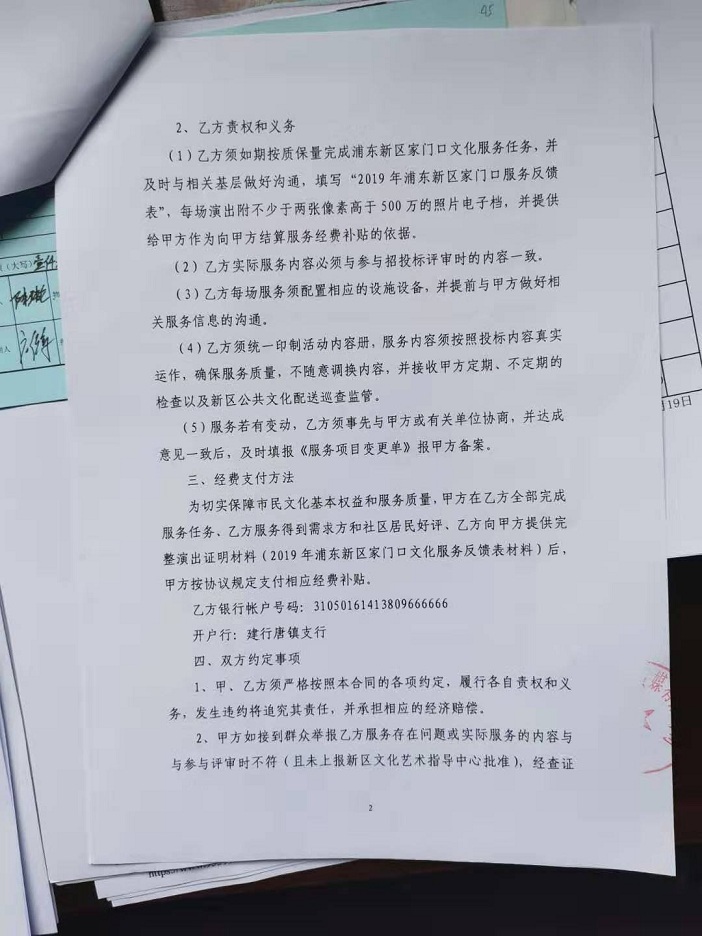 45
2、乙方责权和义务
（1）乙方须如期按质保量完成浦东新区家门口文化服务任务，并
及时与相关基层做好沟通，填写“2019年浦东新区家门口服务反馈
表”，每场演出附不少于两张像素高于500万的照片电子档，并提供
给甲方作为向甲方结算服务经费补贴的依据。
（2）乙方实际服务内容必须与参与招投标评审时的内容一致。
（3）乙方每场服务须配置相应的设施设备，并提前与甲方做好相
关服务信息的沟通。
（4）乙方须统一印制活动内容册，服务内容须按照投标内容真实
运作，确保服务质量，不随意调换内容，并接收甲方定期、不定期的
检查以及新区公共文化配送巡查监管。
（5）服务若有变动，乙方须事先与甲方或有关单位协商，并达成
意见一致后，及时填报《服务项目变更单》报甲方备案。
三、经费支付方法
为切实保障市民文化基本权益和服务质量，甲方在乙方全部完成
服务任务、乙方服务得到需求方和社区居民好评、乙方向甲方提供完
整演出证明材料（2019年浦东新区家门口文化服务反馈表材料）后，
甲方按协议规定支付相应经费补贴。
乙方银行帐户号码：31050161413809666666
开户行：建行唐镇支行
四、双方约定事项
1、甲、乙方须严格按照本合同的各项约定，履行各自责权和义
务，发生违约将追究其责任，并承担相应的经济赔偿。
2、甲方如接到群众举报乙方服务存在问题或实际服务的内容与
与参与评审时不符（且未上报新区文化艺术指导中心批准），经查证
2
（大写）壹仟
月19日